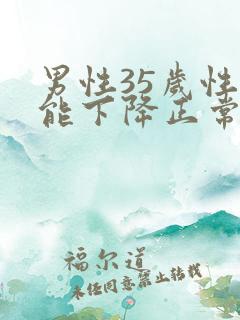 男性35歲性
能下降正常
福尔道
未经同意禁止转载